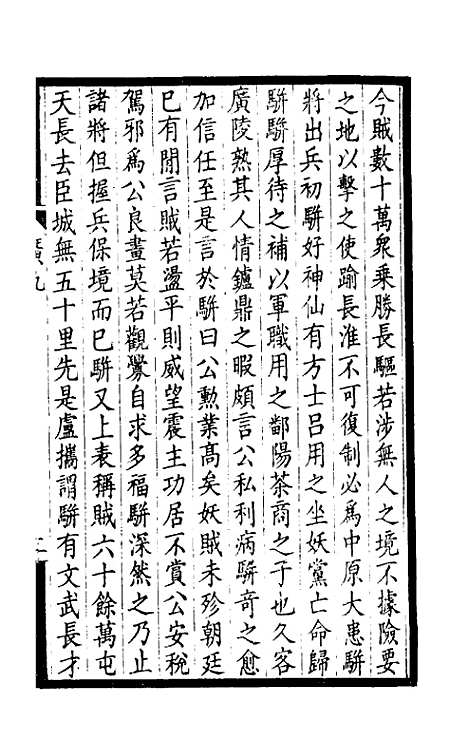 今賊數十萬衆乗勝長驅若涉無人之境不據險要
之地以擊之使踰長淮不可復制必爲中原大患駢
將出兵初駢好神仙有方士吕用之坐妖黨亡命歸
駢駢厚待之補以軍職用之鄱陽茶商之子也久客
廣陵熟其人情鑪鼎之暇頗言公私利病駢竒之愈
加信任至是言於駢曰公勲業髙矣妖賊未殄朝廷
已有閒言賊若盪平則威望震主功居不賞公安稅
駕邪爲公良畫莫若觀釁自求多福駢深然之乃止
諸將但握兵保境而已駢又上表稱賊六十餘萬屯
天長去臣城無五十里先是盧攜謂駢有文武長才